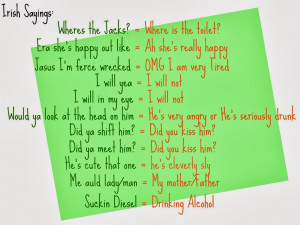 Irish Sayings:
Wheres the Jacks? = Where is the toilet?
Era she's happy out like = Ah she's really happy
Jasus I'm ferce wrecked = OMG I am very tired
I will yea = I will not
I will in my eye = I will not
Would ya look at the head on him = He's very angry or He's seriously drunk
Did ya shift him? = Did you kiss him?
Did ya meet him? = Did you kiss him?
He's cute that one = he's cleverly sly
Me auld lady/man = My mother/Father
Suckin Diesel = Drinking Alcohol